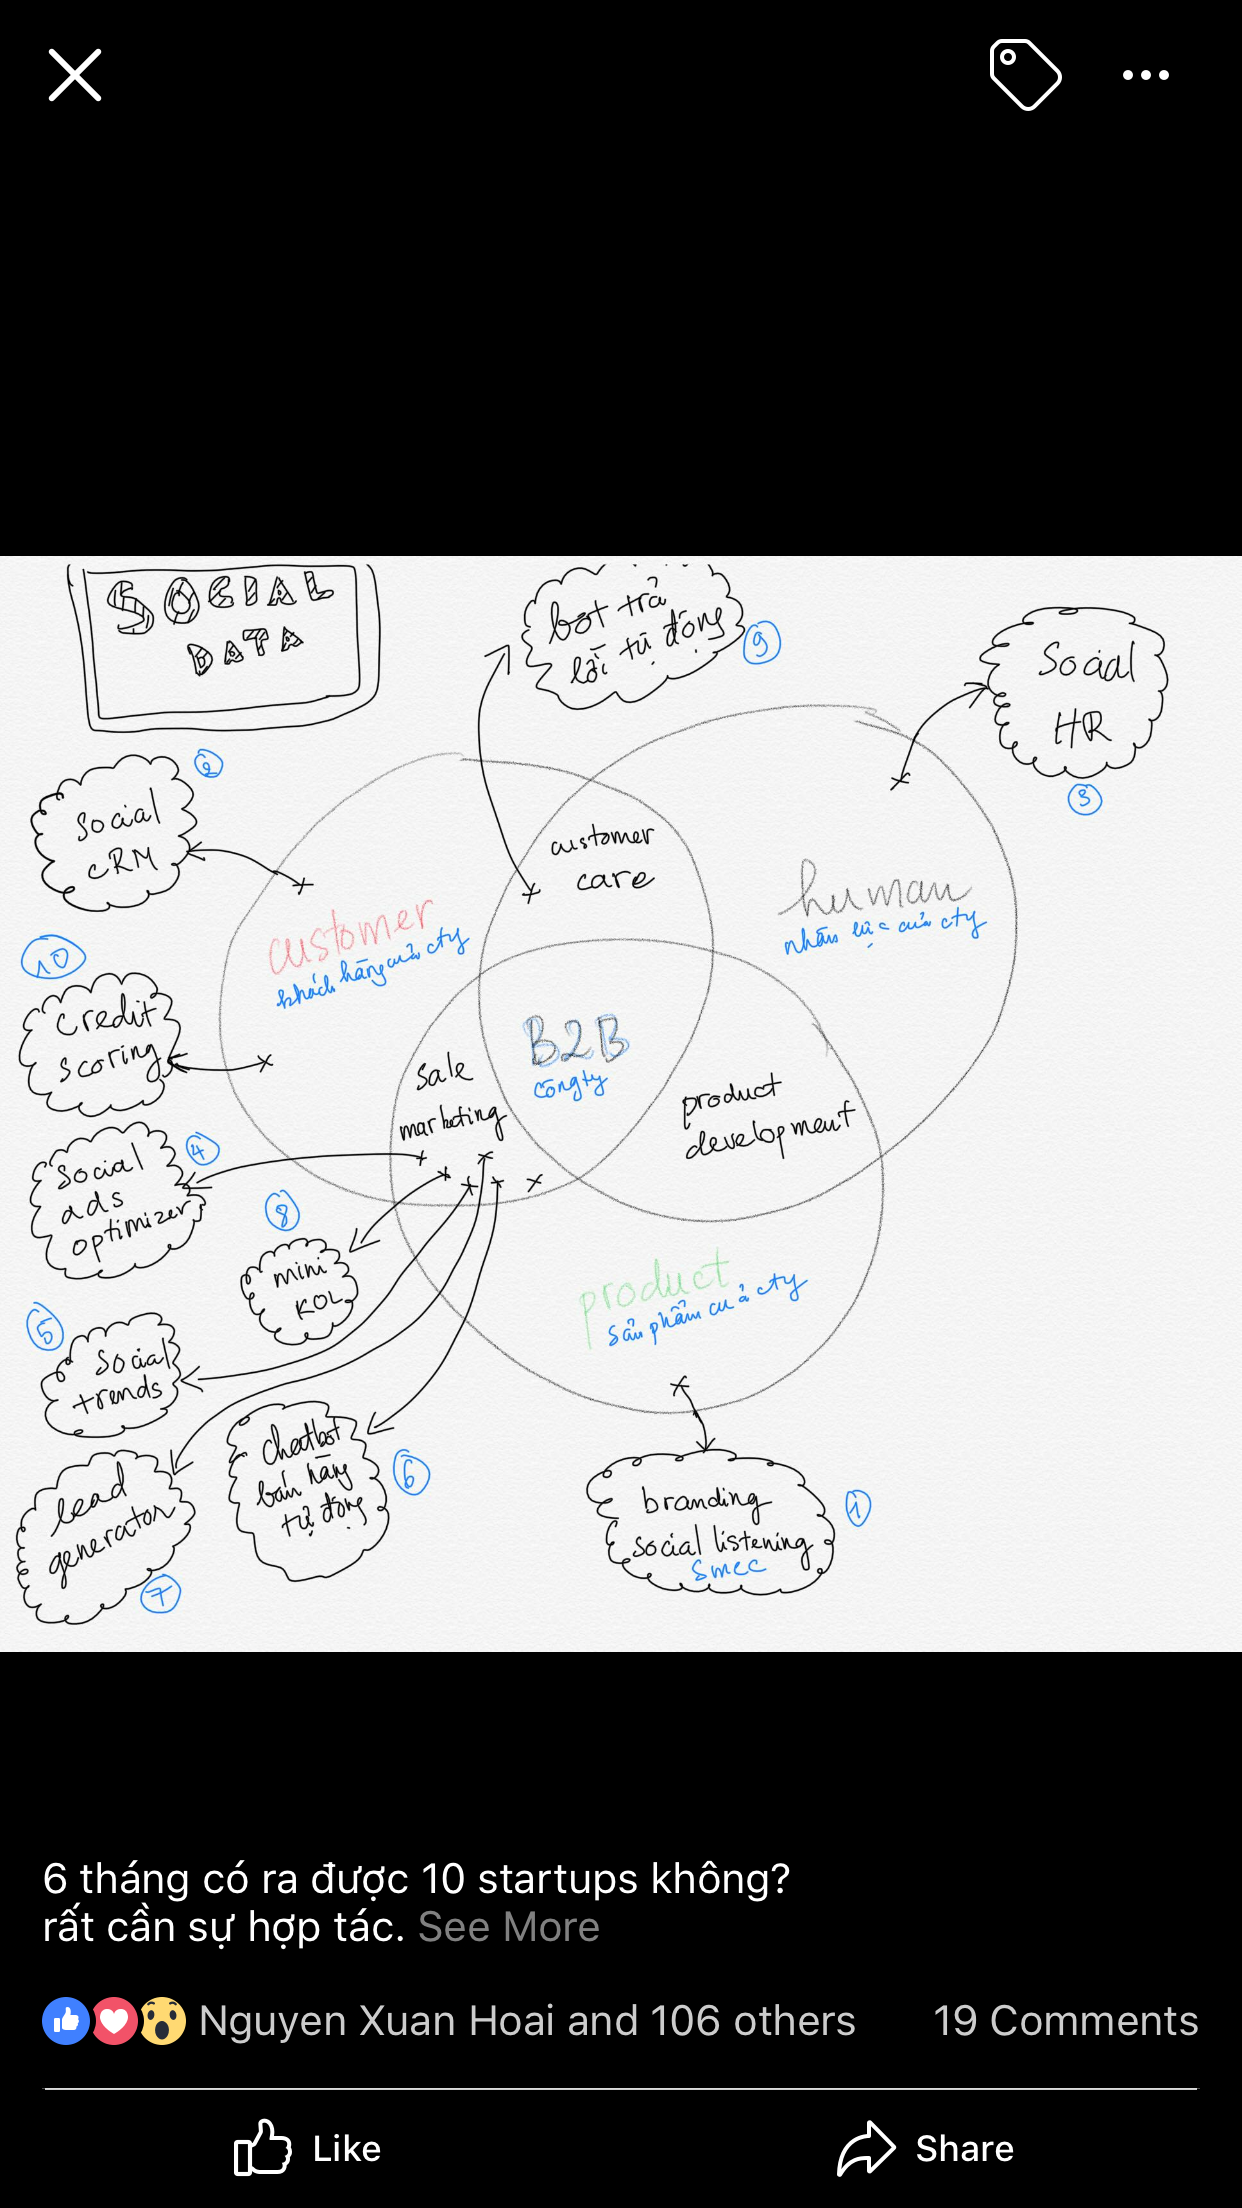 SOCIAL
DATA
bot trả
lời tự động
9
Social
HR
3
2
Social
CRM
customer
care
human
nhân lực của cty
customer
khách hàng của cty
10
Credit
scoring
B2B
công ty
sale
marketing
product
development
4
Social
ads
optimizer
8
mini
KOL
product
sản phẩm của cty
5
Social
trends
chatbot
bán hàng
tự động
6
lead
generator
7
branding
social listening
smcc
1
6 tháng có ra được 10 startups không?
rất cần sự hợp tác. See More
Nguyen Xuan Hoai and 106 others
19 Comments
Like
Share